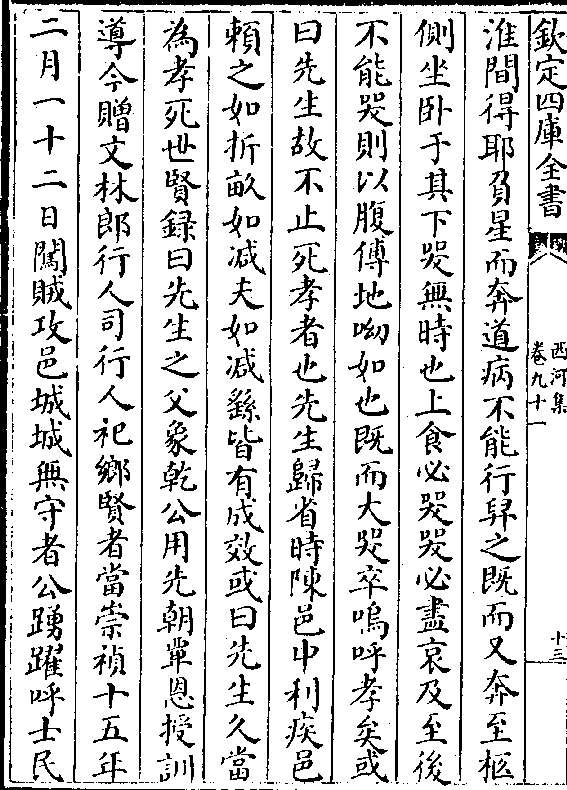 欽定四庫全書
西河集
卷九十一
十三
淮間得耶負星而奔道病不能行舁之既而又奔至柩
側坐卧于其下哭無時也上食必哭哭必盡哀及至後
不能哭則以腹傅地呦如也既而大哭卒嗚呼孝矣或
曰先生故不止死孝者也先生歸省時陳邑中利疾邑
賴之如折畝如減夫如減繇皆有成效或曰先生久當
為孝死世賢録曰先生之父象乾公用先朝覃恩授訓
導今贈文林郎行人司行人祀鄉賢者當崇禎十五年
二月一十二日闖賊攻邑城城無守者公踴躍呼士民